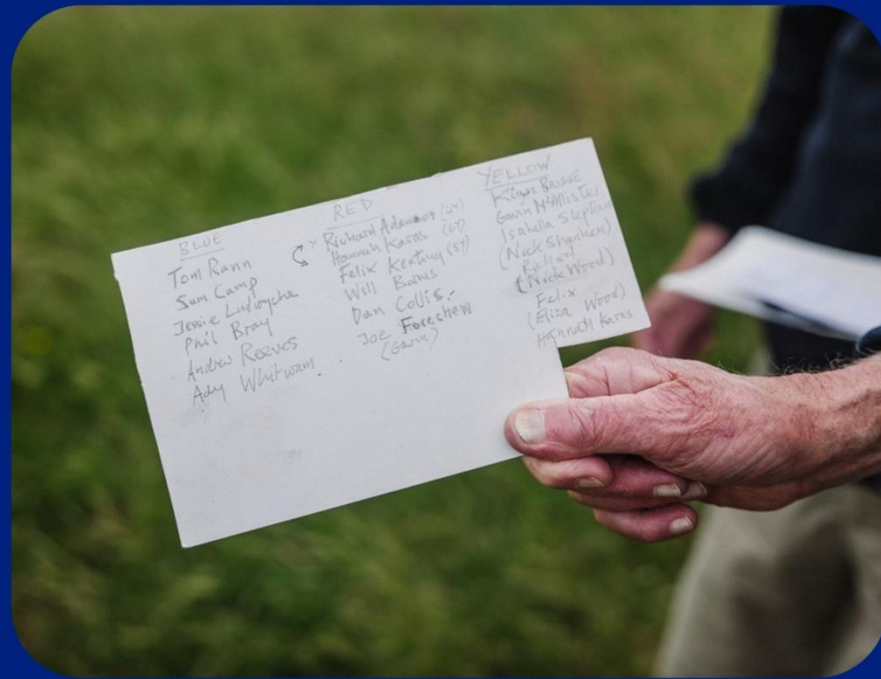 BLUE
Tom Rann
Sam Camp
Jessie
Phil Bray
Andrew Reeves
Ady Whitwam
RED
Richard
Hannah Karas (64)
Felix Keating (54)
Will Burns
Dan Collis
Joe Foreshew
(Gavin)
YELLOW
Gavin McAllister
Isabella
(Nick
Richard
(Nick Wood)
Felix
(Eliza Wood)
Hannah Karas